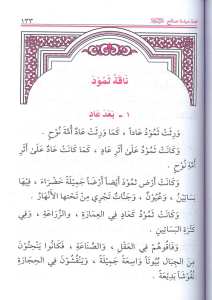 قصة سيدنا صالح
١٣٣
نَاقَةُ ثَمُودَ
١ - بَعْدَ عَادٍ
وَرِثَتْ ثَمُودُ عَاداً ، كَمَا وَرِثَتْ عَادٌ أُمَّةَ نُوحٍ .
وَكَانَتْ ثَمُودُ عَلَىٰ أَثَرِ عَادٍ ، كَمَا كَانَتْ عَادٌ عَلَىٰ أَثَرِ
أُمَّةِ نُوحٍ .
وَكَانَتْ أَرْضُ ثَمُودَ أَيْضاً أَرْضاً جَمِيلَةً خَضْرَاءَ ، فِيهَا
بَسَاتِينُ ، وَعُيُونٌ ، وَجَنَّاتٌ تَجْرِي مِنْ تَحْتِهَا الأَنْهَارُ .
وَكَانَتْ ثَمُودُ كَعَادٍ فِي العِمَارَةِ ، وَالزِّرَاعَةِ ، وَفِي
كَثْرَةِ البَسَاتِينِ .
وَفَاقُوهُمْ فِي العَقْلِ ، وَالصِّنَاعَةِ ، فَكَانُوا يَنْحِتُونَ
مِنَ الجِبَالِ بُيُوتاً وَاسِعَةً جَمِيلَةً ، وَيَنْقُشُونَ فِي الحِجَارَةِ
نُقُوشاً بَدِيعَةً .